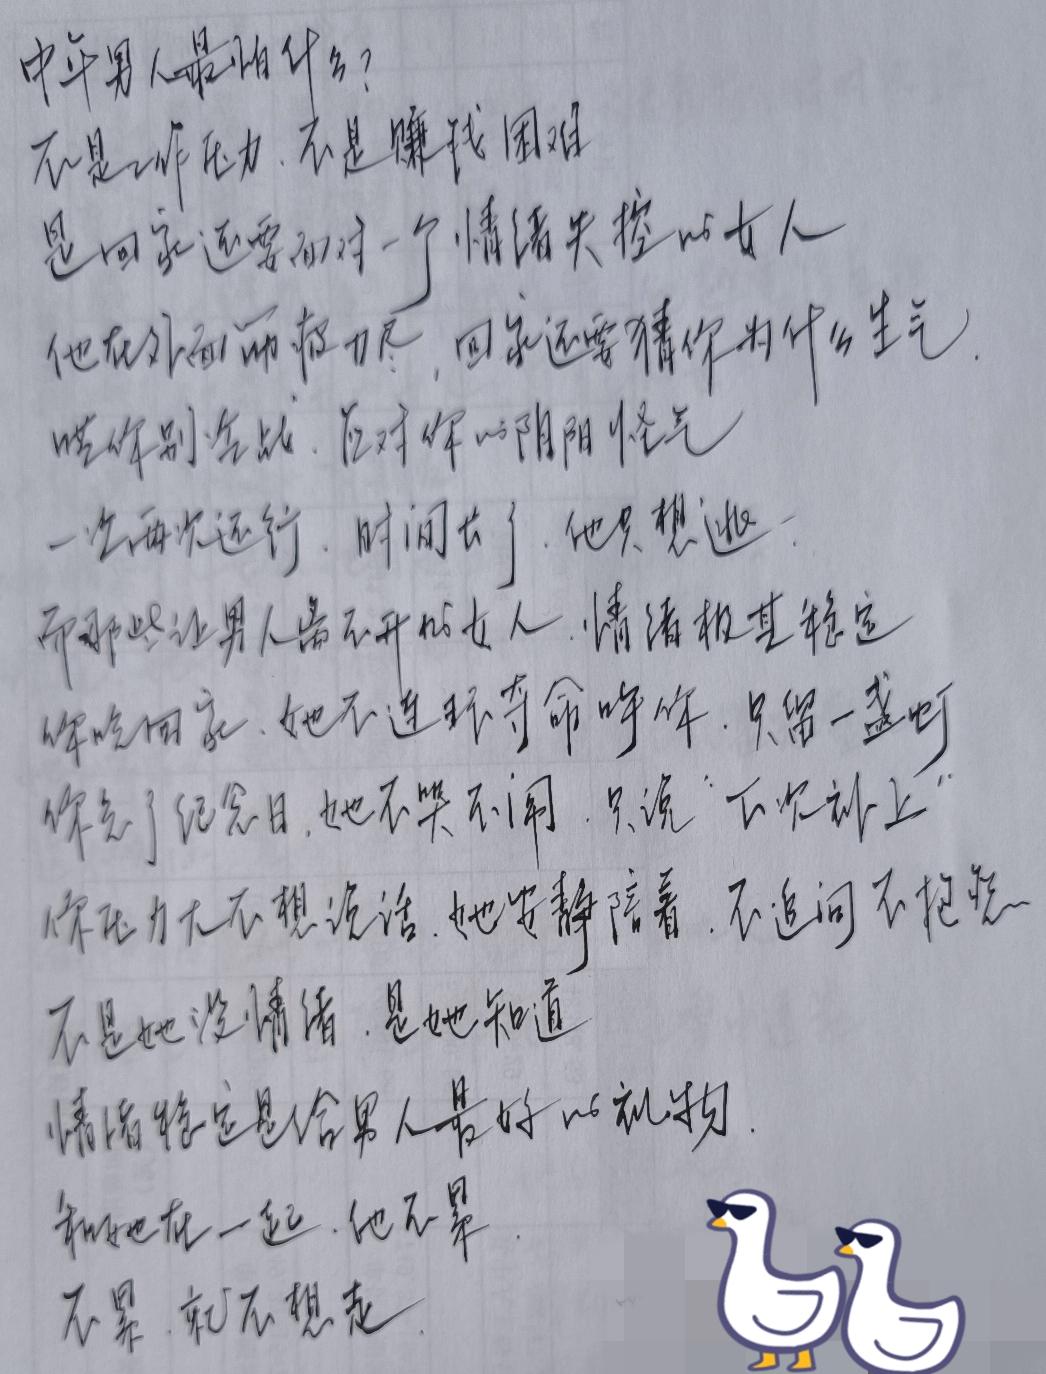 中年男人最怕什么?
不是工作压力、不是赚钱困难
是回家还要面对一个情绪失控的女人
他在外面筋疲力尽,回家还要猜你为什么生气、
哄你别冷战、应对你的阴阳怪气
一次两次还行、时间长了、他只想逃.
而那些让男人离不开的女人、情绪极其稳定
你晚回家、她不连环夺命呼你、只留一盏灯
你忘了纪念日,她不哭不闹、只说“下次补上”
你压力大不想说话、她安静陪着、不追问不抱怨
不是她没情绪、是她知道
情绪稳定是给男人最好的礼物.
和她在一起、他不累.
不累、就不想走.